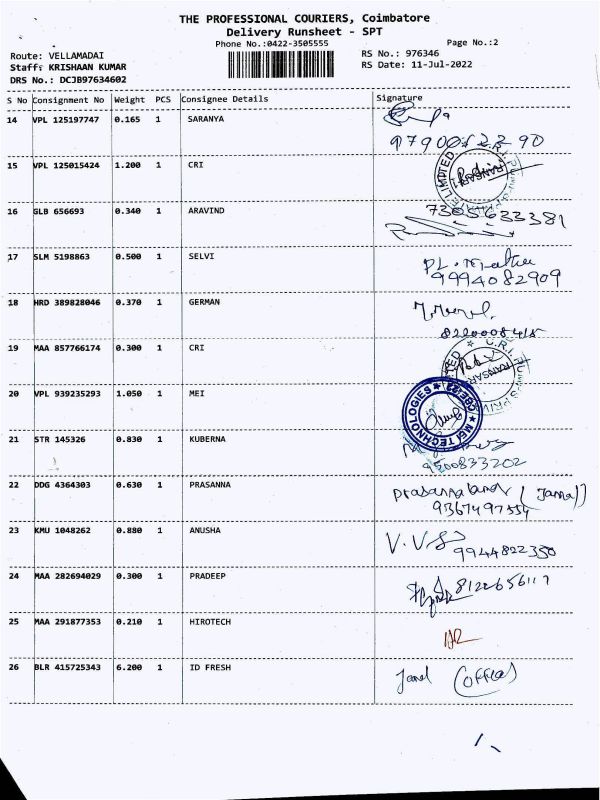 THE PROFESSIONAL COURIERS, Coimbatore
Delivery Runsheet - SPT
Phone No.:0422-3505555
Page No.:2
Route: VELLAMADAI
RS No.: 976346
Staff: KRISHAAN KUMAR
RS Date: 11-Jul-2022
DRS No.: DCJB97634602
S No Consignment No Weight PCS Consignee Details Signature
14 VPL 125197747 0.165 1 SARANYA
15 VPL 125015424 1.200 1 CRI
16 GLB 656693 0.340 1 ARAVIND
7305633381
17 SLM 5198863 0.500 1 SELVI
9994082909
18 HRD 389828046 0.370 1 GERMAN
8220008415
19 MAA 857766174 0.300 1 CRI
20 VPL 939235293 1.050 1 MEI
MEI TECHNOLOGIES
21 STR 145326 0.830 1 KUBERNA
9500833202
22 DDG 4364303 0.630 1 PRASANNA
23 KMU 1048262 0.880 1 ANUSHA
9944822350
24 MAA 282694029 0.300 1 PRADEEP
25 MAA 291877353 0.210 1 HIROTECH
26 BLR 415725343 6.200 1 ID FRESH
(office)